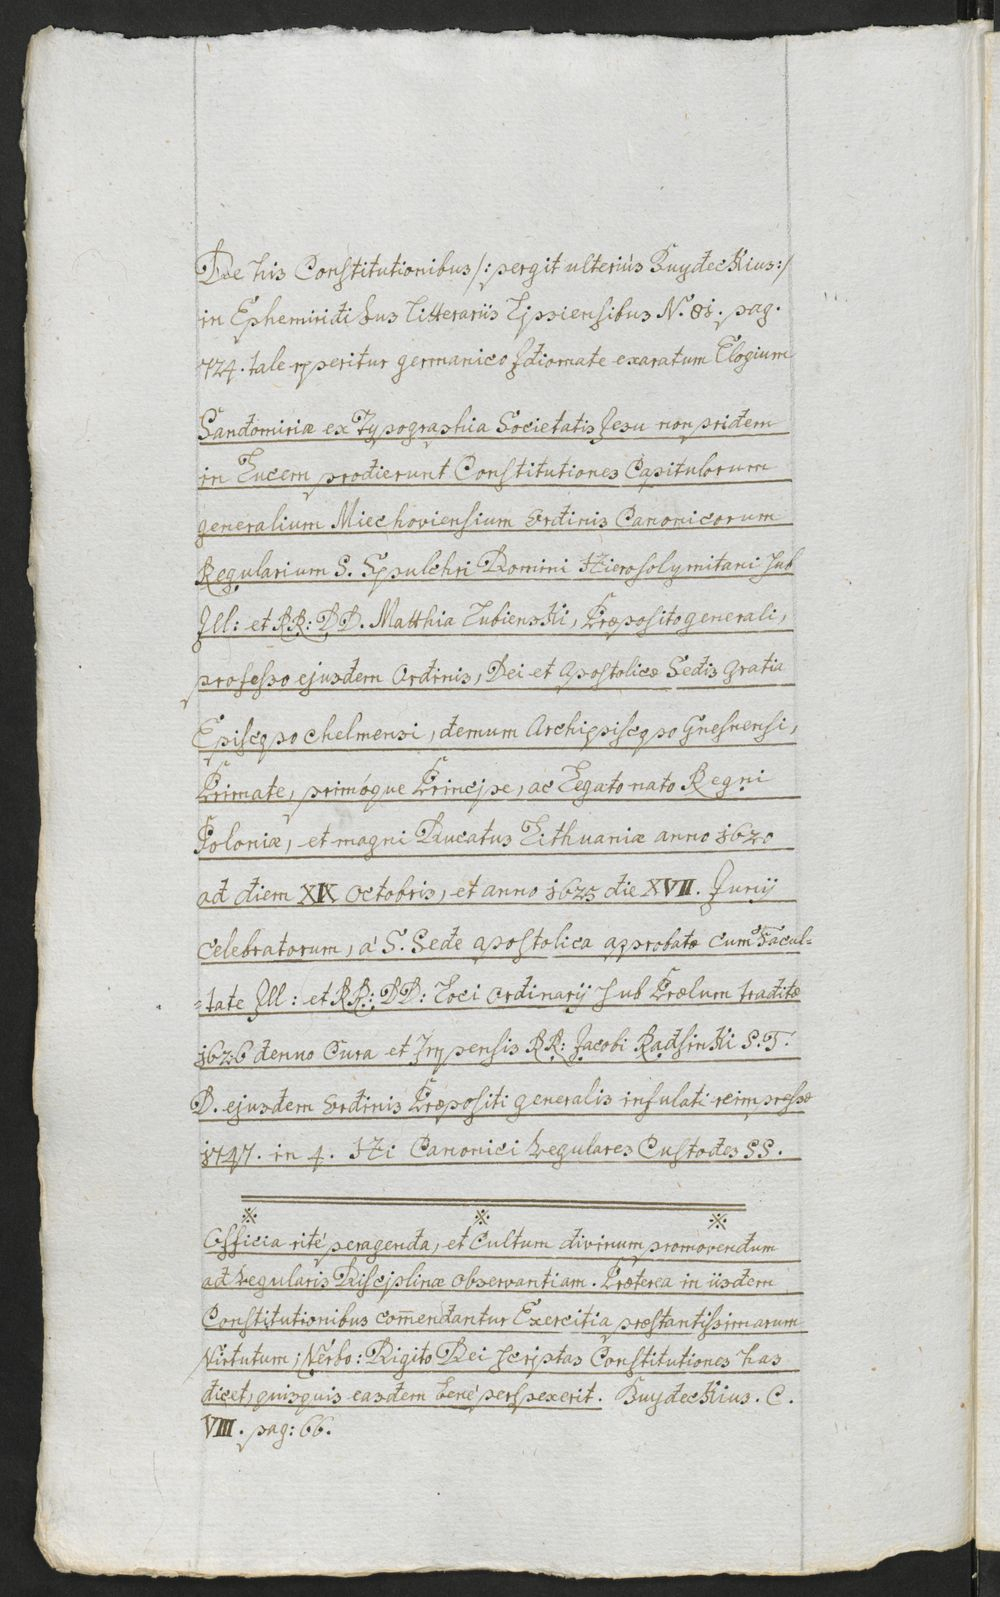 De his Constitutionibus /: pergit ulteriùs Buydeckius :/
in Ephemiridibus Litterariis Lipsiensibus N. 81. pag.
724. tale reperitur germanico Idiomate exaratum Elogium
Sandomiriæ ex Typographia Societatis Jesu non pridem
in Lucem prodierunt Constitutiones Capitulorum
generalium Miechoviensium Ordinis Canonicorum
Regularium S. Sepulchri Domini Hierosolymitani sub
Ill: et RR: DD. Matthia Lubienski, Præposito generali,
professo ejusdem Ordinis, Dei et Apostolicæ Sedis gratia
Episcopo Chelmensi, demum Archiepiscopo Gnesnensi,
Primate, primóque Principe, ac Legato nato Regni
Poloniæ, et magni Ducatus Lithuaniæ anno 1620
ad diem XIX Octobris, et anno 1625 die XVII. Junij
celebratorum, à S. Sede apostolica approbatæ cum Facul=
=tate Ill: et RR: DD: Loci Ordinarij sub Prælum traditæ
1626 denuo Cura et Impensis RR: Jacobi Radlinski S. T.
D. ejusdem Ordinis Præpositi generalis infulati reimpressæ
1747. in 4. Hi Canonici Regulares Custodes SS.
Officia ritè peragenda, et Cultum divinum promovendum
ad Regularis Disciplinæ observantiam. Præterea in iisdem
Constitutionibus com̄endantur Exercitia præstantissimarum
Virtutum; Verbo: Digito Dei scriptas Constitutiones has
dicet, quisquis easdem benè perspexerit. Buydeckius. C.
VIII. pag: 66.